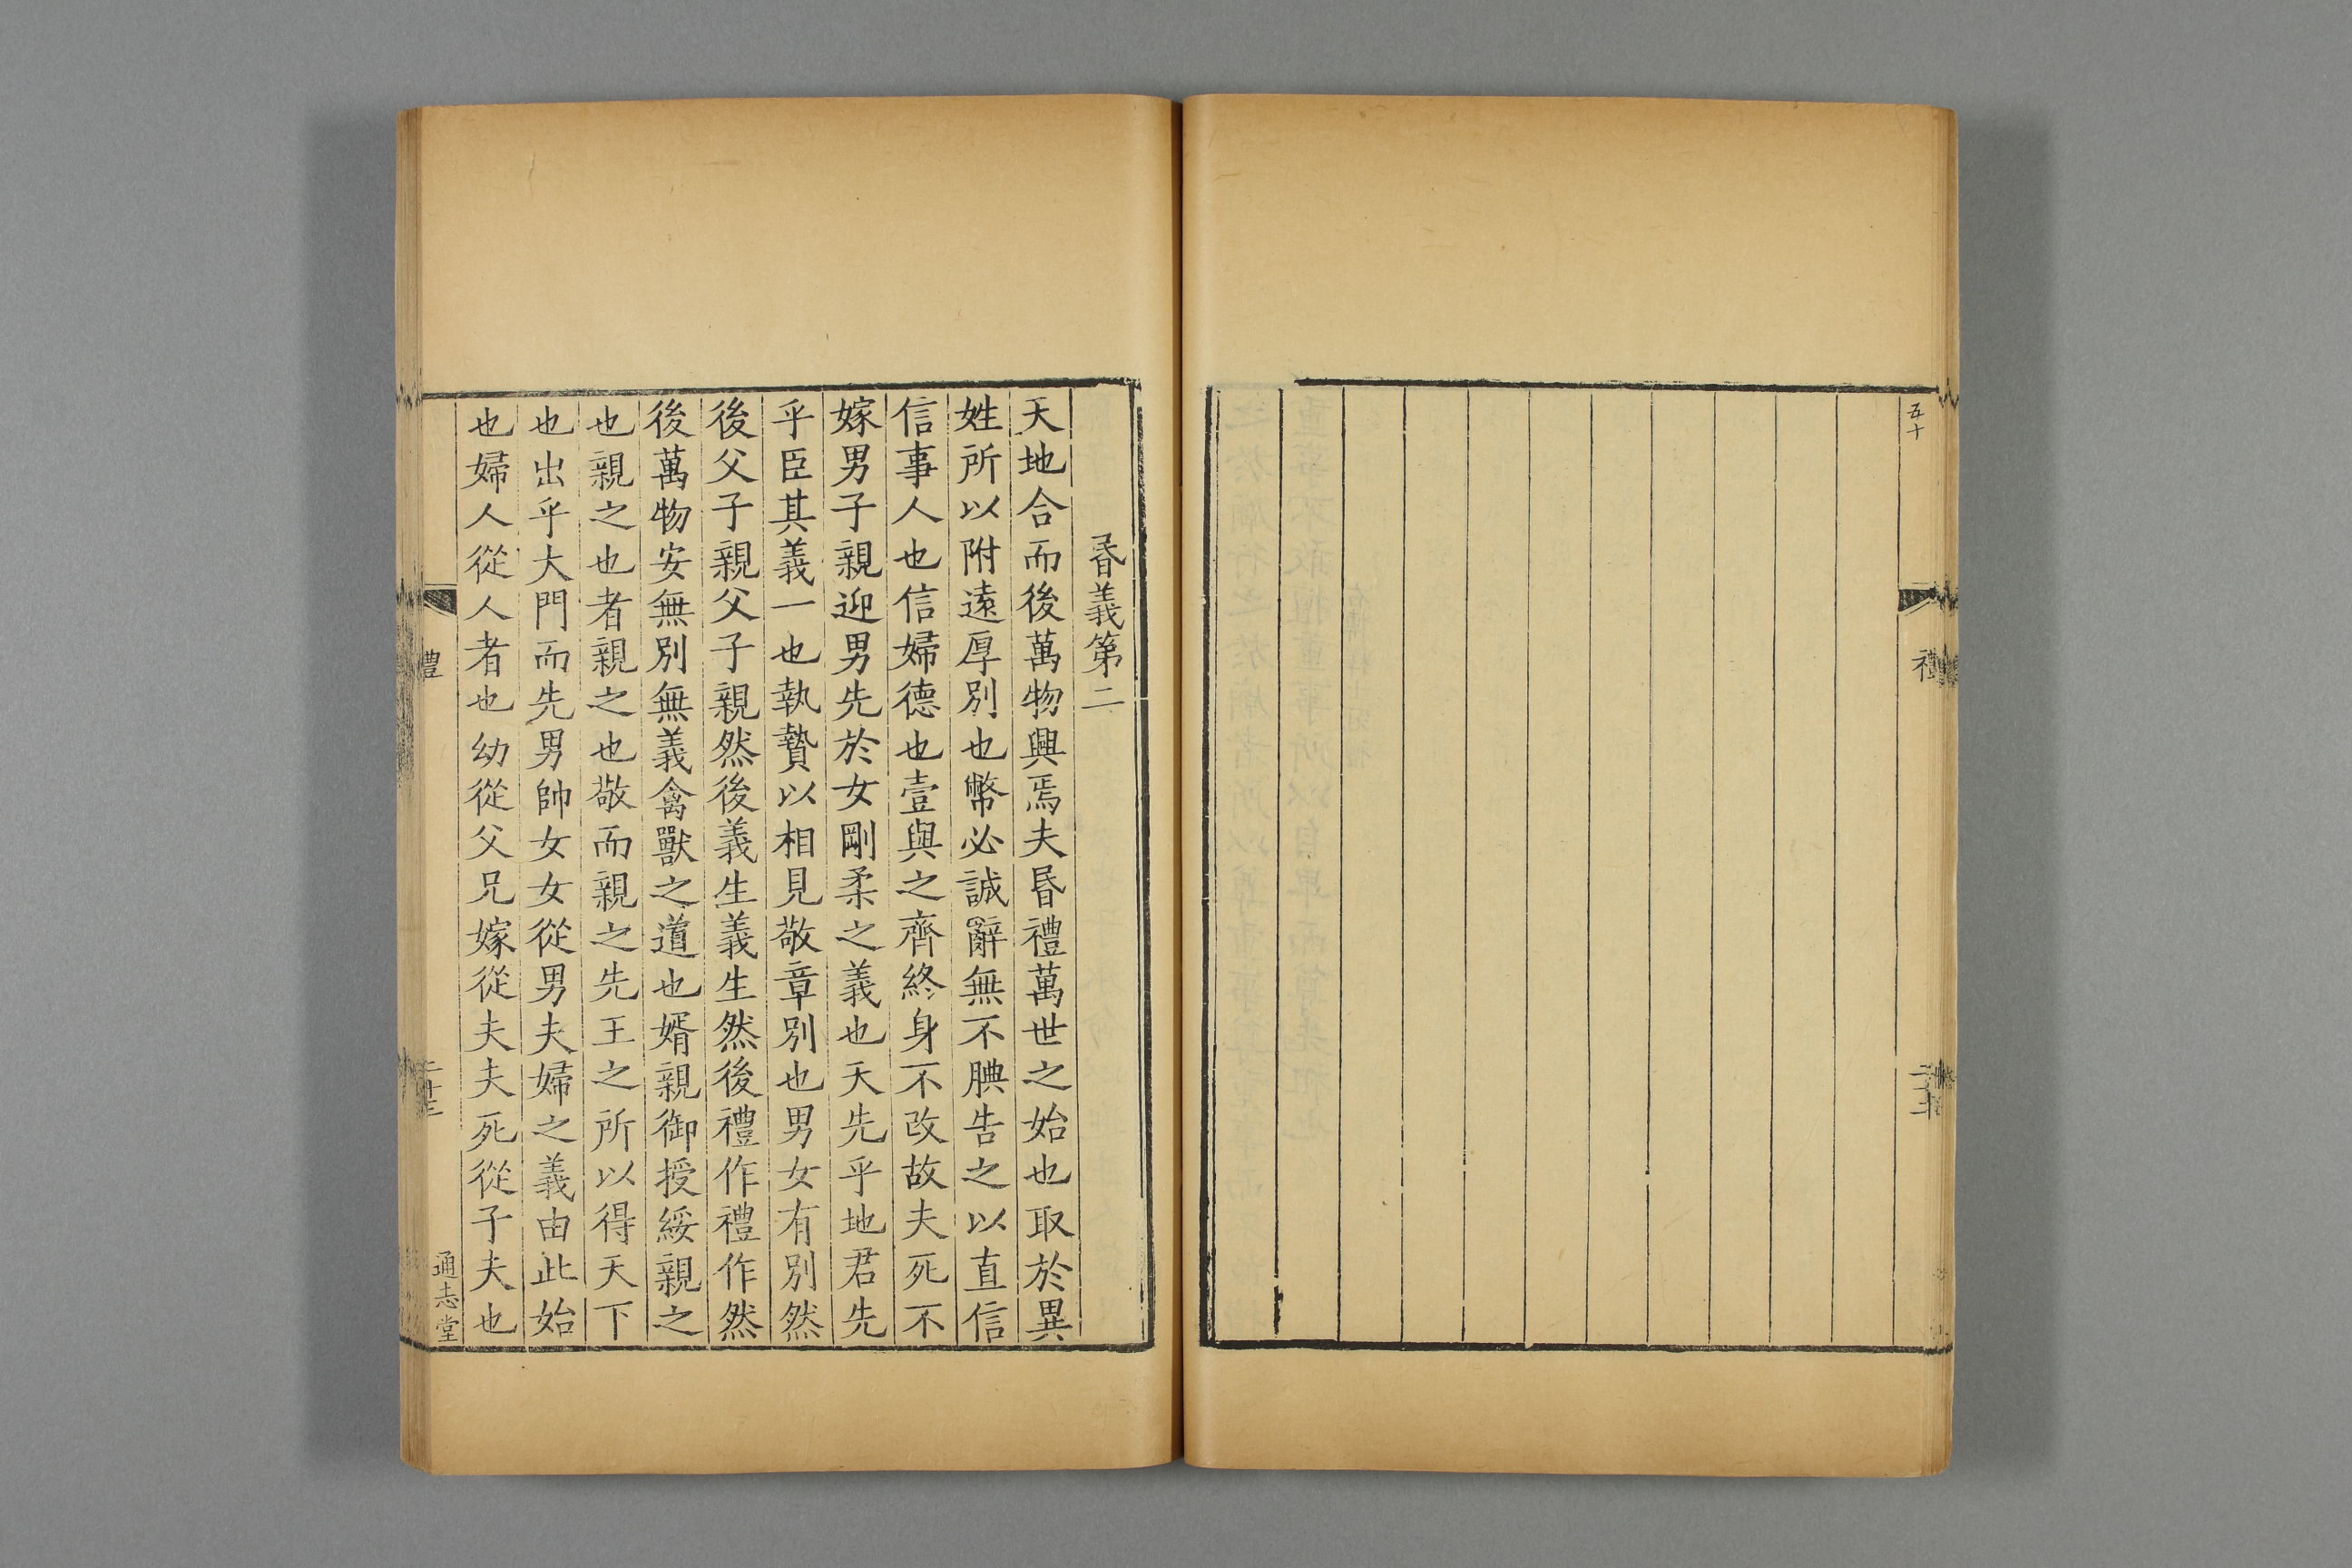 五十
禮
昬義第二
天地合而後萬物興焉夫昬禮萬世之始也取於異
姓所以附遠厚別也幣必誠辭無不腆告之以直信
信事人也信婦德也壹與之齊終身不改故夫死不
嫁男子親迎男先於女剛柔之義也天先乎地君先
乎臣其義一也執贄以相見敬章別也男女有別然
後父子親父子親然後義生義生然後禮作禮作然
後萬物安無別無義禽獸之道也婿親御授綏親之
也親之也者親之也敬而親之先王之所以得天下
也出乎大門而先男帥女女從男夫婦之義由此始
也婦人從人者也幼從父兄嫁從夫夫死從子夫也
禮
通志堂